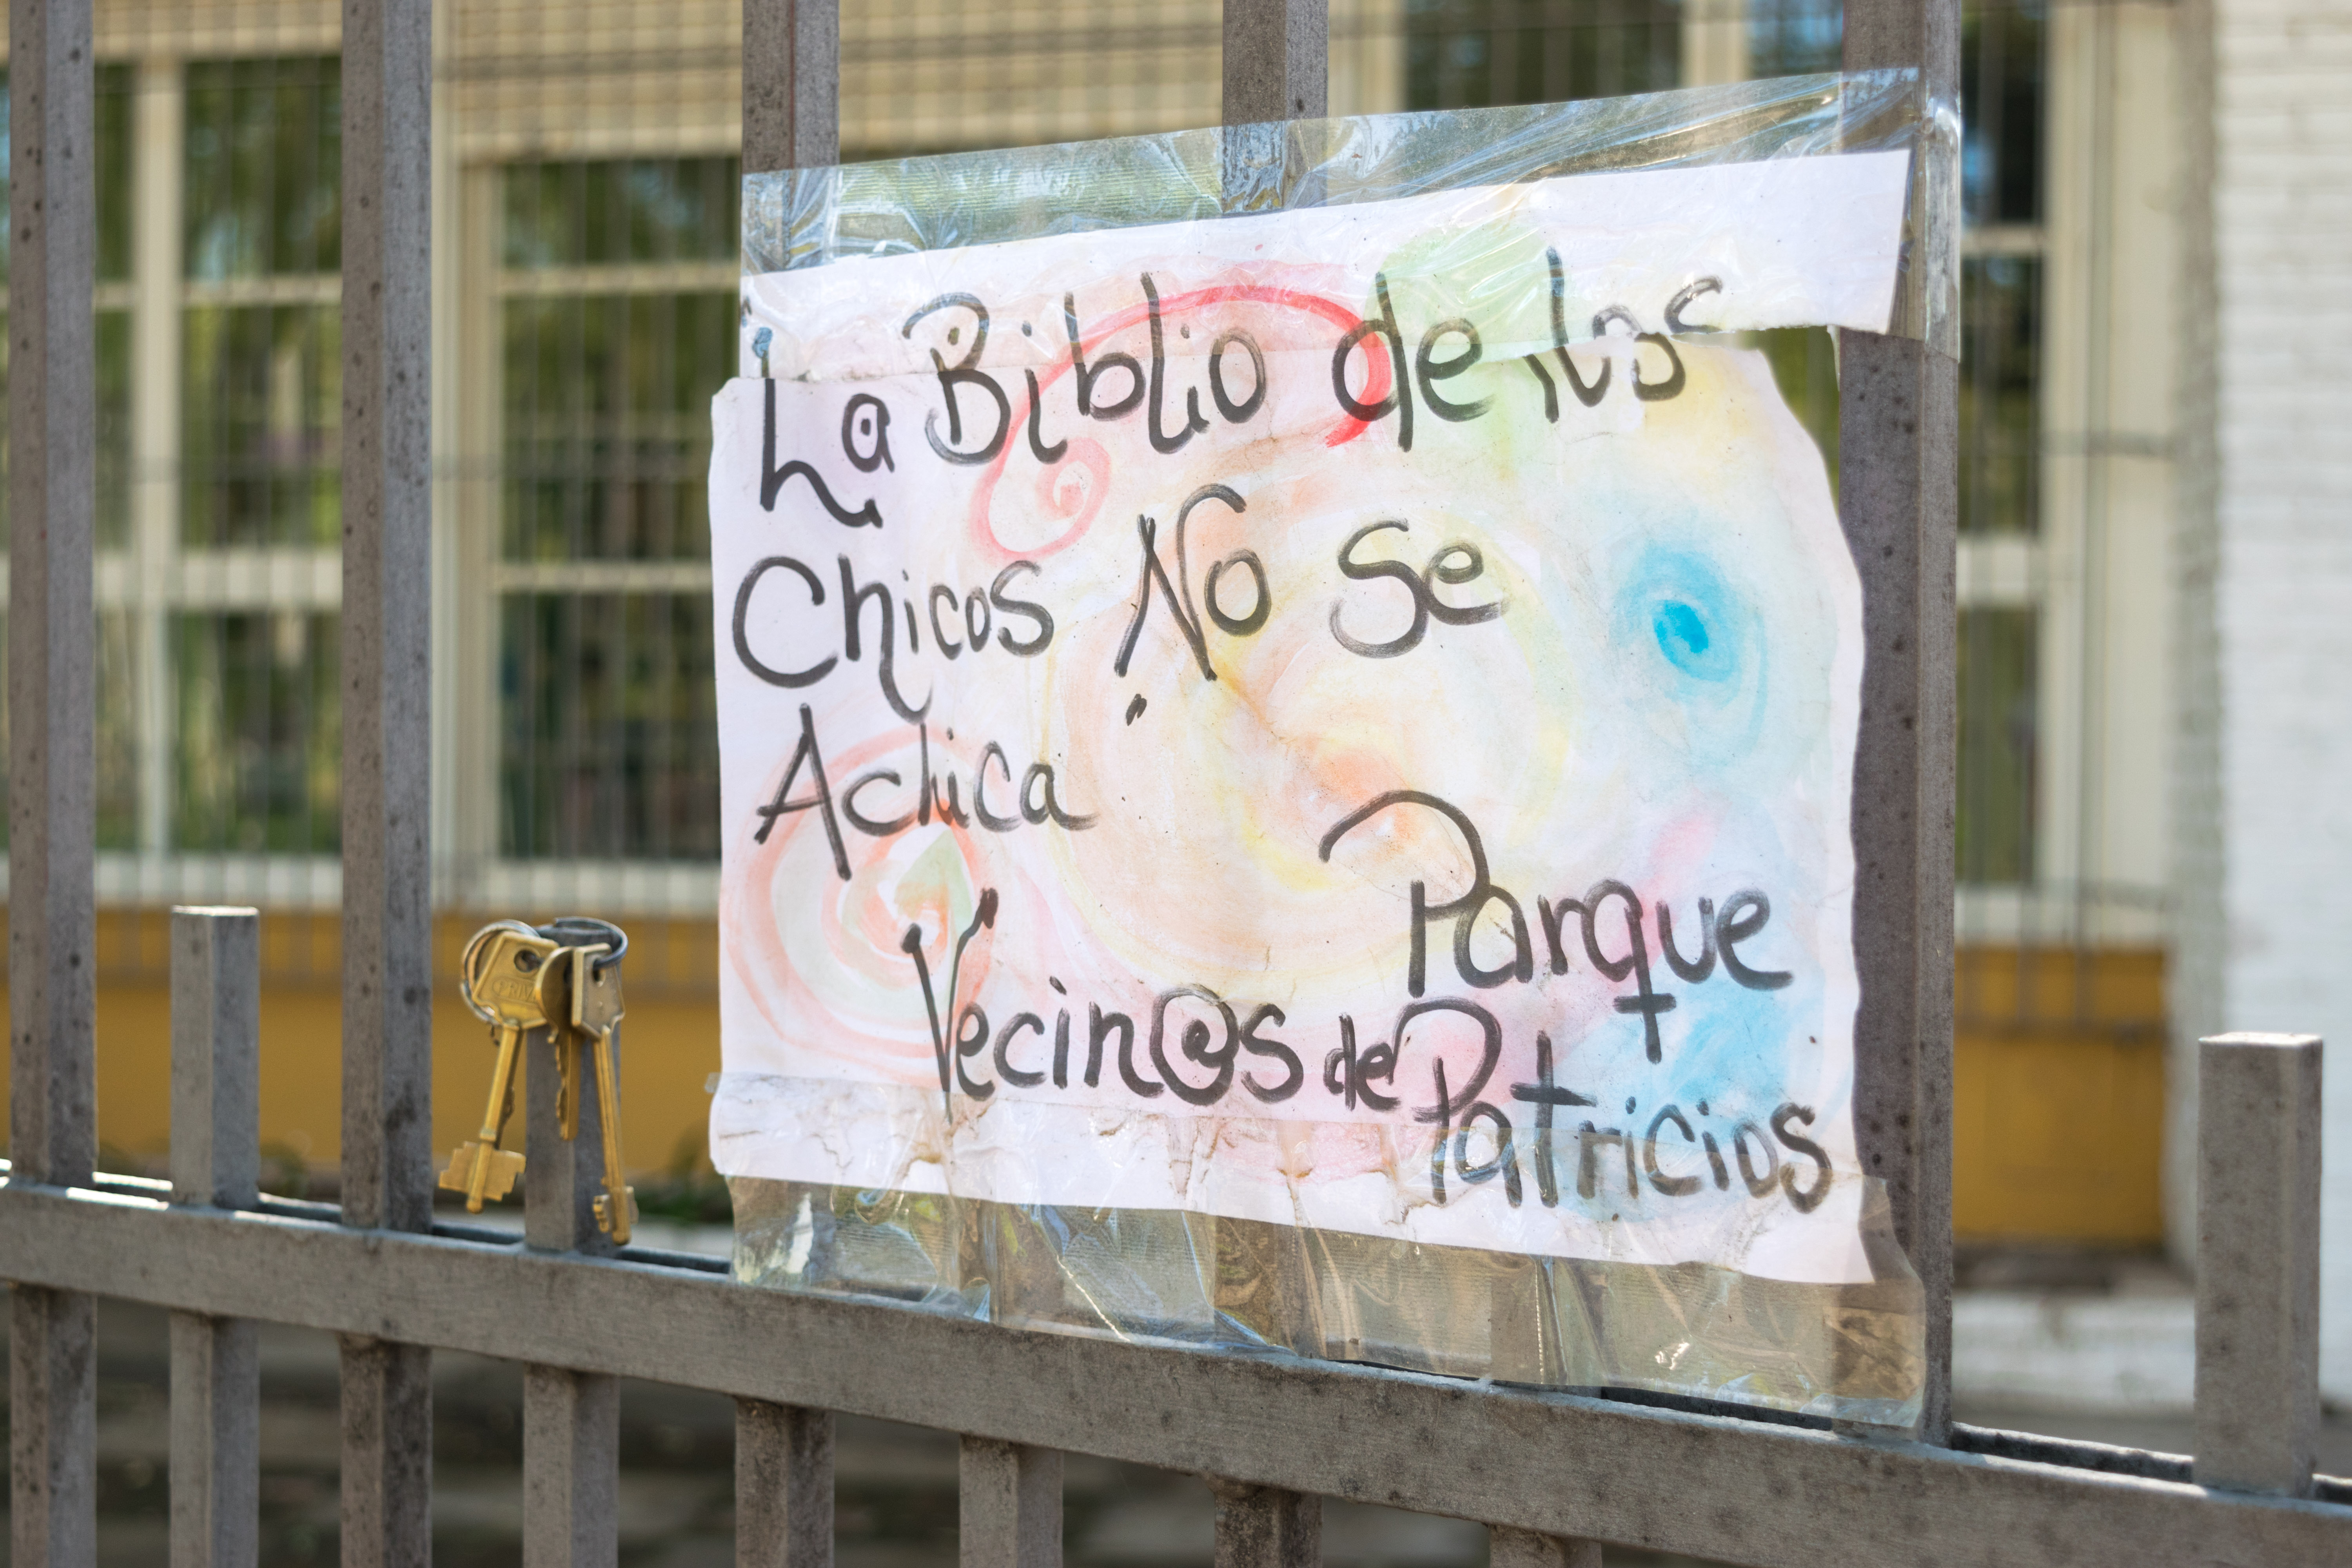 La Biblio de los
Chicos No se
Achica
Parque
Vecin@s de Patricios